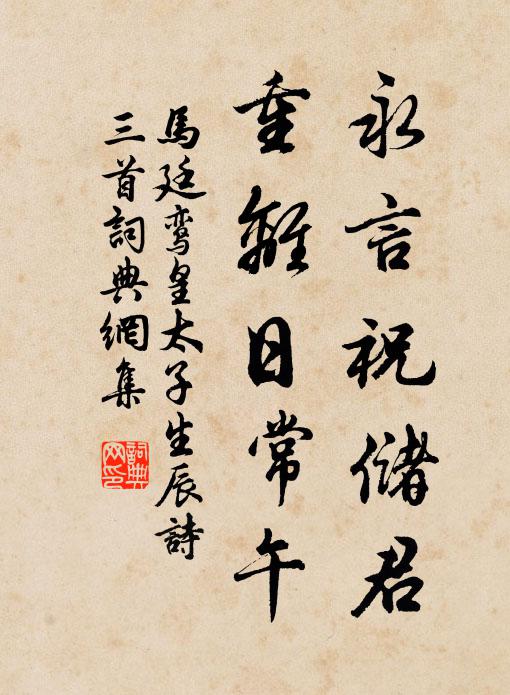 永言祝儲君
重離日常午
馬廷鸾皇太子生辰詩
三首詞典網集
詞典网印